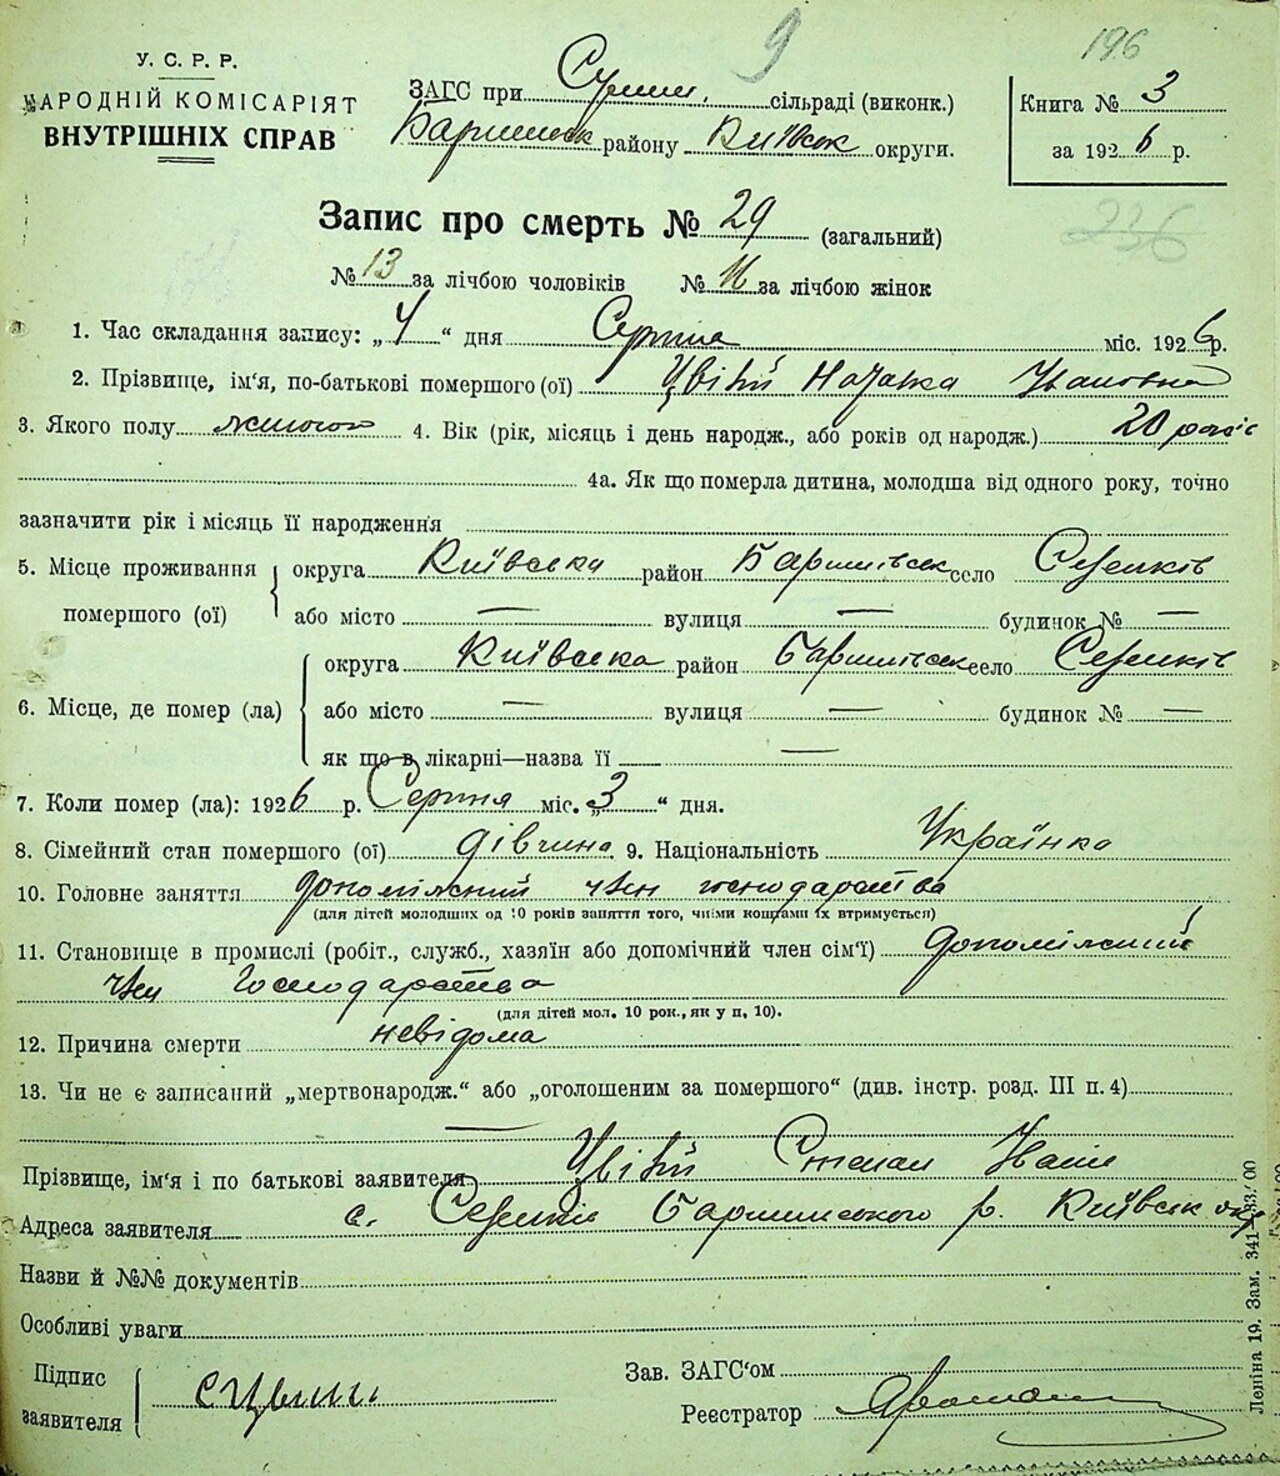 9
196
У. С. Р. Р.
НАРОДНІЙ КОМІСАРІЯТ
ВНУТРІШНІХ СПРАВ
ЗАГС при сільраді (виконк.)
району Київськ округи.
Книга № 3
за 1926 р.
236
Запис про смерть № 29 (загальний)
№ 13 за лічбою чоловіків № 16 за лічбою жінок
1. Час складання запису: „4“ дня Серпня міс. 1926 р.
2. Прізвище, ім'я, по-батькові помершого (ої) Цвітй Наталка Ивановна
3. Якого полу жіночого 4. Вік (рік, місяць і день народж., або років од народж.) 20 років
4а. Як що померла дитина, молодша від одного року, точно
зазначити рік і місяць її народження
5. Місце проживання помершого (ої) округа Київська район Баришівськ село Селепків
або місто — вулиця — будинок № —
6. Місце, де помер (ла) округа Київська район Баришівськ село Селепків
або місто — вулиця — будинок № —
як що в лікарні—назва її —
7. Коли помер (ла): 1926 р. Серпня міс. „3“ дня.
8. Сімейний стан помершого (ої) дівчина 9. Національність Українка
10. Головне заняття допоміжний член господарства
(для дітей молодших од 10 років заняття того, чиїми коштами їх втримується)
11. Становище в промислі (робіт., служб., хазяїн або допомічний член сім'ї) допоміжний
член господарства
(для дітей мол. 10 рок., як у п. 10).
12. Причина смерти невідома
13. Чи не є записаний „мертвонародж.“ або „оголошеним за помершого“ (див. інстр. розд. III п. 4)
—
Прізвище, ім'я і по батькові заявителя Цвітй Степан Иван
Адреса заявителя с. Селепків Баришівського р. Київськ окр
Назви й №№ документів
Особливі уваги
Підпис заявителя
Зав. ЗАГС'ом
Реєстратор
Леніна 19. Зам. 341